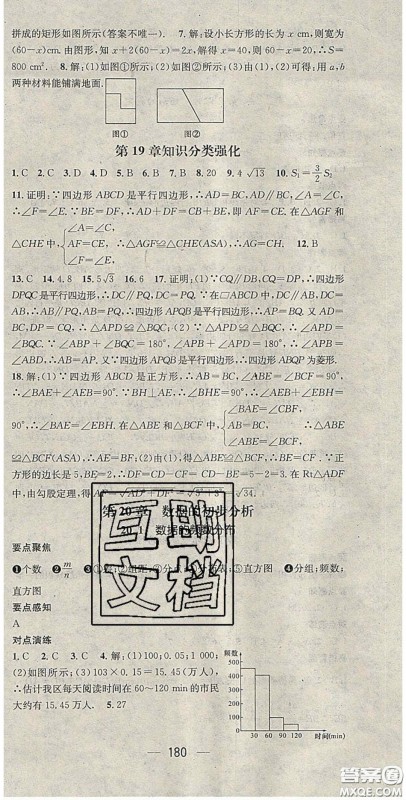 拼成的矩形如图所示(答案不唯一). 7. 解:设小长方形的长为 x cm,则宽为
(60-x)cm. 由图形,知 x+2(60-x)=2x. 解得 x=40. ∴60-x=20. ∴S=
800 cm². 8. 解:(1)如图①所示;(2)如图②所示;(3)由(1)(2),可得;用 a,b
两种材料能铺满地面.
图① 图②
第 19 章知识分类强化
1. C 2. C 3. A 4. D 5. C 6. A 7. B 8. 20 9. 4√13 10. S₁=3/2 S₂
11. 证明:∵四边形 ABCD 是平行四边形,∴AD=BC,AD∥BC,∠A=∠C.
∴∠F=∠E. ∵BE=DF,∴AD+DF=CB+BE,即 AF=CE. 在△AGF 和
△CHE 中, {∠A=∠C, AF=CE, ∠F=∠E, ∴△AGF≌△CHE(ASA),∴AG=CH. 12. B
13. C 14. 4.8 15. 5√3 16. 6 17. 证明:(1)∵CQ∥DP,∴四边形
DPQC 是平行四边形,∴DC∥PQ,DC=PQ. ∵在▱ABCD 中,DC∥AB,
DC=AB,∴AB∥PQ,AB=PQ,∴四边形 ABQP 是平行四边形,∴AP=BQ. 又
∵AD=BC,DP=CQ,∴△APD≌△BQC;(2)∵CQ∥DP,∴∠APD+∠CQP
=180°. 又∵∠ABP+∠BQC=180°,
∴∠ABP=∠APB,∴AB=AP,∴四边形 ABQP 为菱形.
18. 解:(1)∵四边形 ABCD 是正方形,∴AB=BC,∠ABE=∠BCF=90°,
∴∠BAE+∠AEB=90°.
90°,∴∠BAE=∠EBH. 在△ABE 和△BCF 中, {∠BAE=∠CBF, AB=BC, ∠ABE=∠BCF, ∴△ABE
≌△BCF(ASA),∴AE=BF;(2)由(1),得△ABE≌△BCF,∴BE=CF. ∵正
方形的边长是 5,BE=2,∴DF=CD-CF=CD-BE=5-2=3. 在 Rt△ADF
中,由勾股定理,得 AF=
第 20 章 数据的初步分析
20.1 数据的频数分布
要点聚焦
❶个数 ❷m/n ❹分组;频数;
直方图
要点感知
A
对点演练
1. C 2. C 3. C 4. 解:(1)100;0.05;1 000;
(2)如图所示;(3)103×0.15=15.45(万人),
∴估计我区每天阅读时间在 60~120 min 的市民
大约有 15.45 万人. 5. 27
频数
500
400
300
200
100
0 30 60 90 120 时间(min)
180
互助
文档
答案圈
MXQE.COM